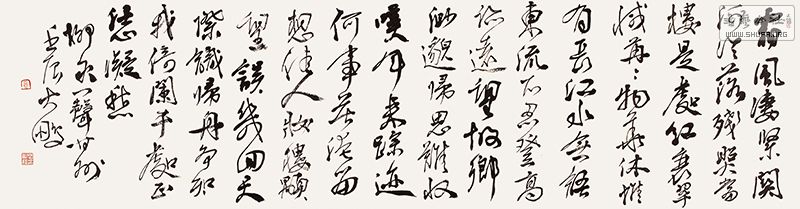 霜風淒緊關
河冷落殘照當
樓是處紅衰翠
減苒々物華休惟
有長江水無語
東流不忍登高
臨遠望故鄉
渺邈歸思難收
嘆年來踪迹
何事苦淹留
想佳人妝樓顒
望誤幾回天
際識歸舟爭知
我倚闌干處正
恁凝愁
柳永八聲甘州
壬辰大鵬